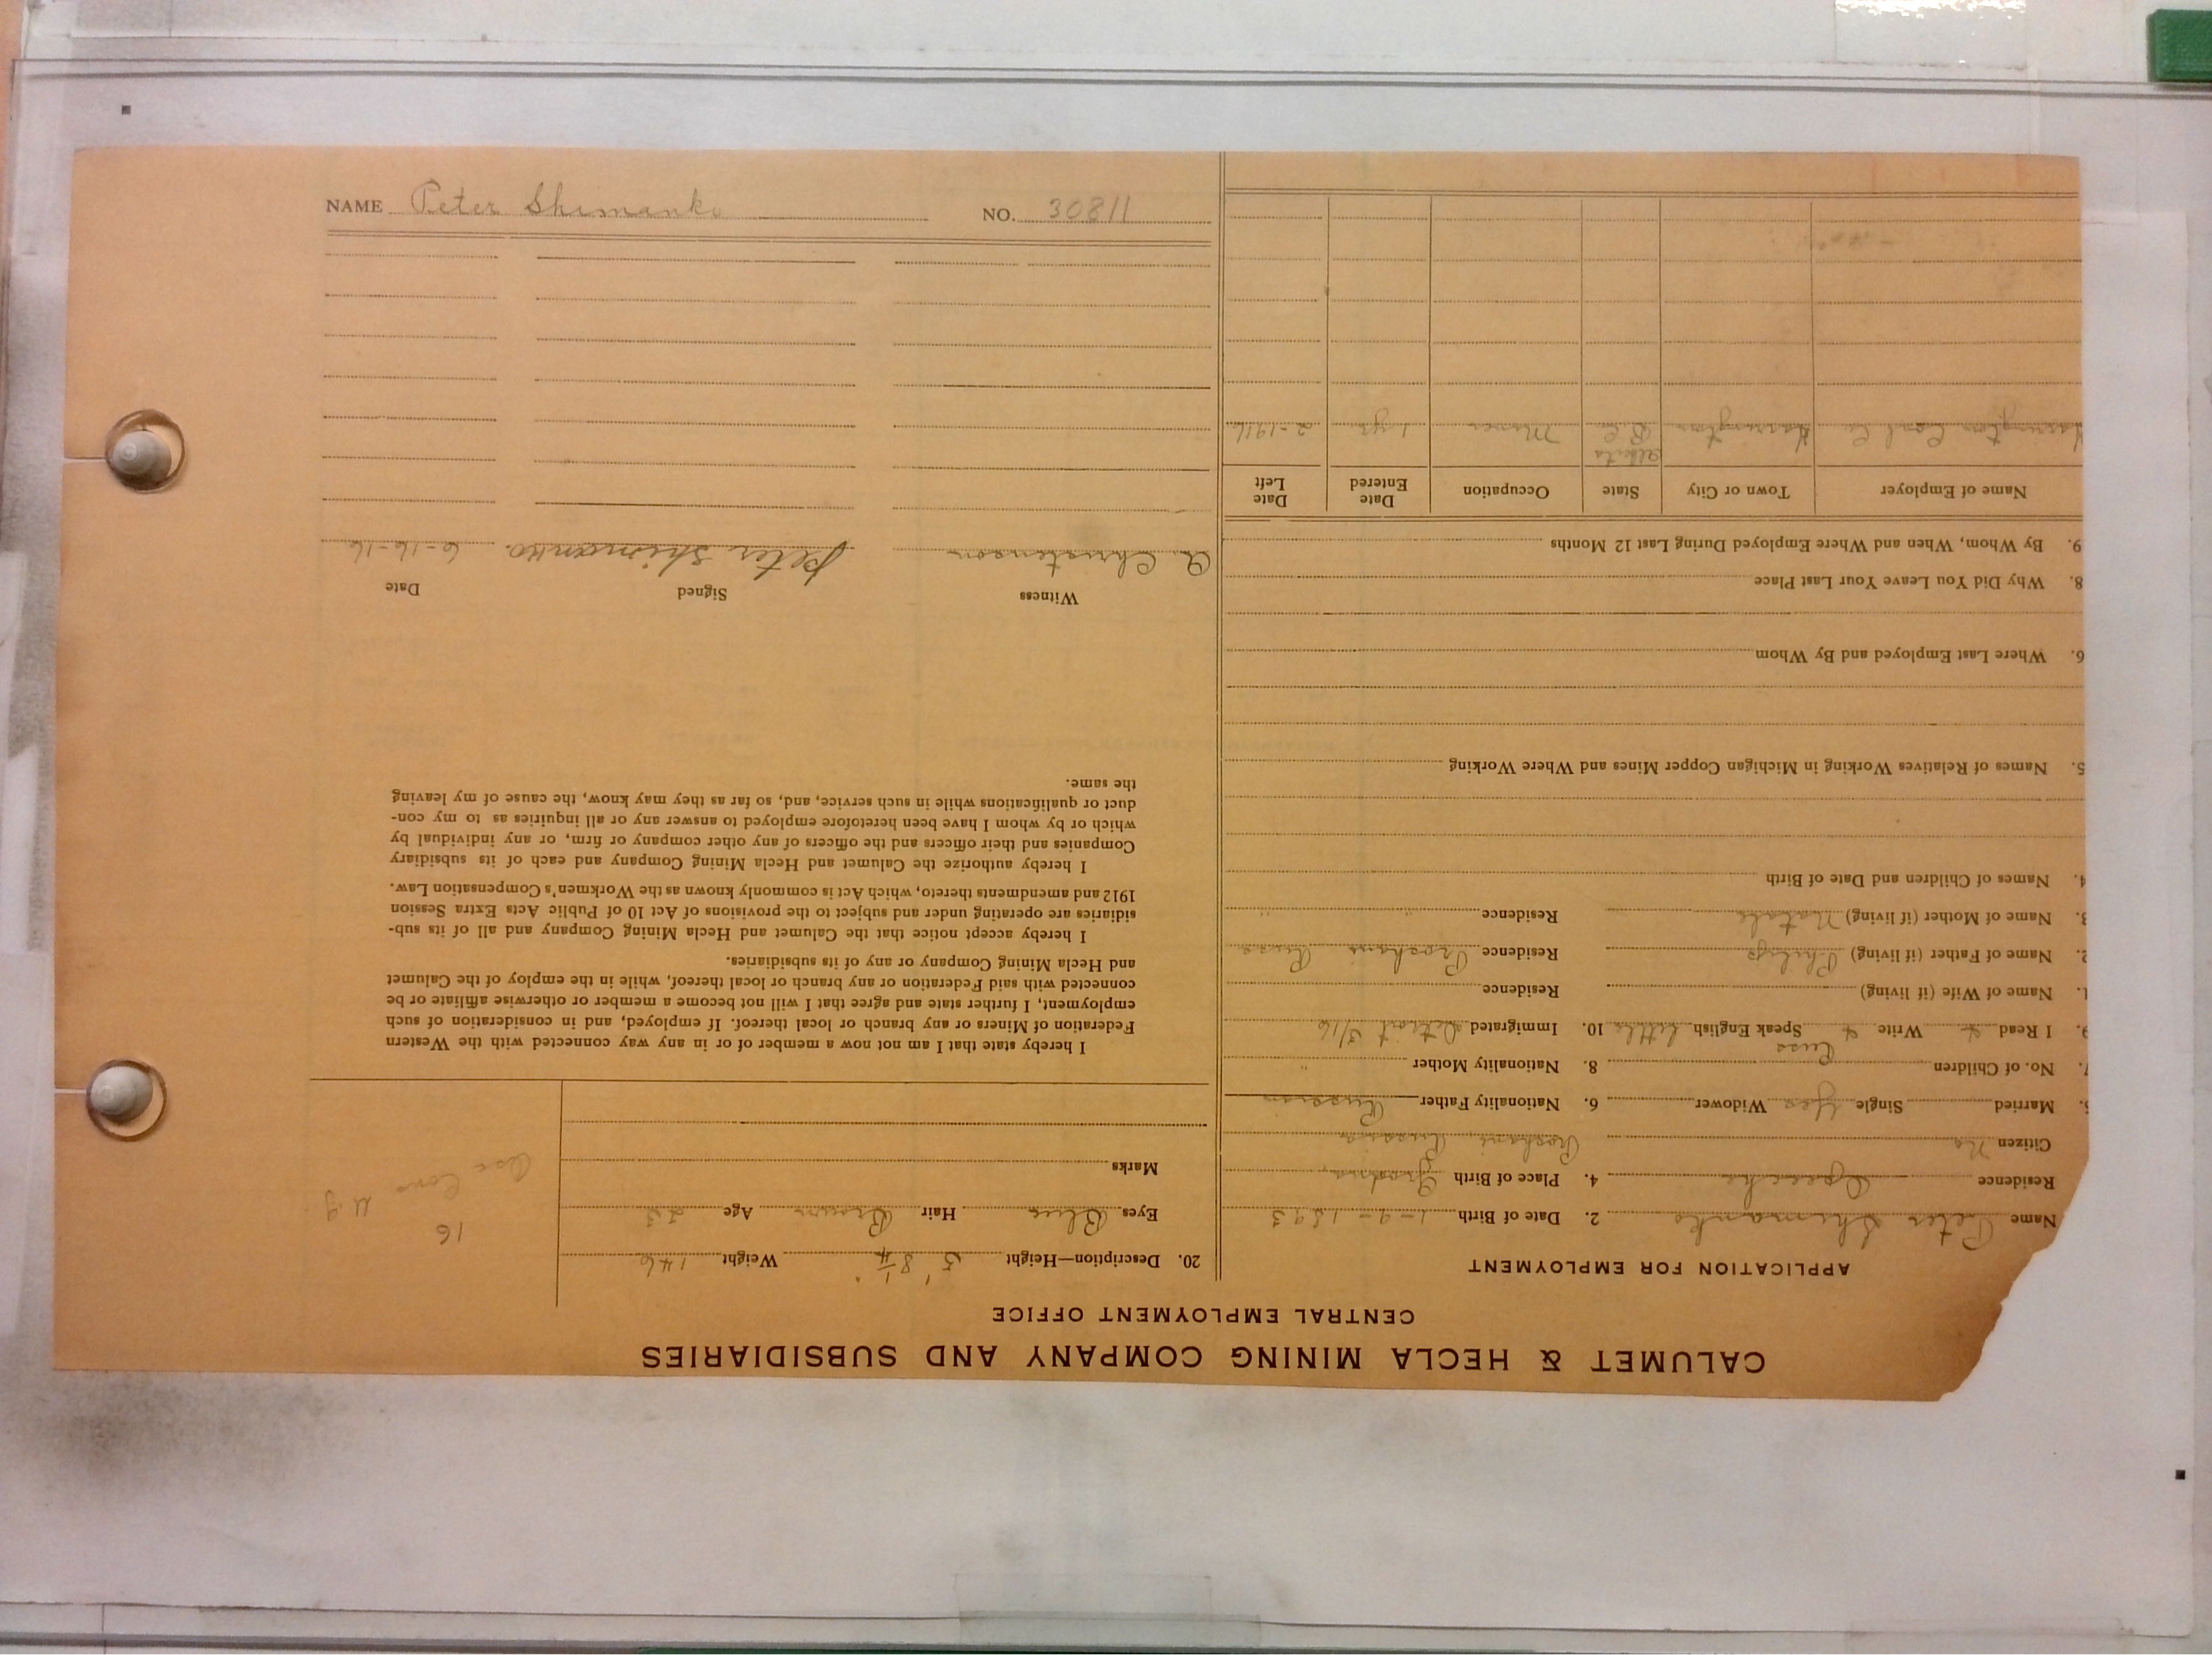 CALUMET & HECLA MINING COMPANY AND SUBSIDIARIES
CENTRAL EMPLOYMENT OFFICE
APPLICATION FOR EMPLOYMENT
Name Peter Shimanko 2. Date of Birth 1-9-1893
Residence 4. Place of Birth Grodno,
Citizen No Russia
Married Single Yes Widower 6. Nationality Father Russian
7. No. of Children 8. Nationality Mother "
Russ
9. I Read Write Speak English little 10. Immigrated Detroit 3/16
1. Name of Wife (if living) Residence
2. Name of Father (if living) Philip Residence Russia
3. Name of Mother (if living) Residence " "
4. Names of Children and Date of Birth
5. Names of Relatives Working in Michigan Copper Mines and Where Working
6. Where Last Employed and By Whom
8. Why Did You Leave Your Last Place
9. By Whom, When and Where Employed During Last 12 Months
Name of Employer Town or City State Occupation Date Entered Date Left
Alberta
Coal Co B.C. Miner 1 yr 2-1916
20. Description—Height 5' 8 1/4" Weight 146
16
Eyes Blue Hair Brown Age 23
Marks
I hereby state that I am not now a member of or in any way connected with the Western
Federation of Miners or any branch or local thereof. If employed, and in consideration of such
employment, I further state and agree that I will not become a member or otherwise affiliate or be
connected with said Federation or any branch or local thereof, while in the employ of the Calumet
and Hecla Mining Company or any of its subsidiaries.
I hereby accept notice that the Calumet and Hecla Mining Company and all of its sub-
sidiaries are operating under and subject to the provisions of Act 10 of Public Acts Extra Session
1912 and amendments thereto, which Act is commonly known as the Workmen's Compensation Law.
I hereby authorize the Calumet and Hecla Mining Company and each of its subsidiary
Companies and their officers and the officers of any other company or firm, or any individual by
which or by whom I have been heretofore employed to answer any or all inquiries as to my con-
duct or qualifications while in such service, and, so far as they may know, the cause of my leaving
the same.
Witness Signed Date
A. Christenson Peter Shimanko. 6-16-16
NAME Peter Shimanko NO. 30811